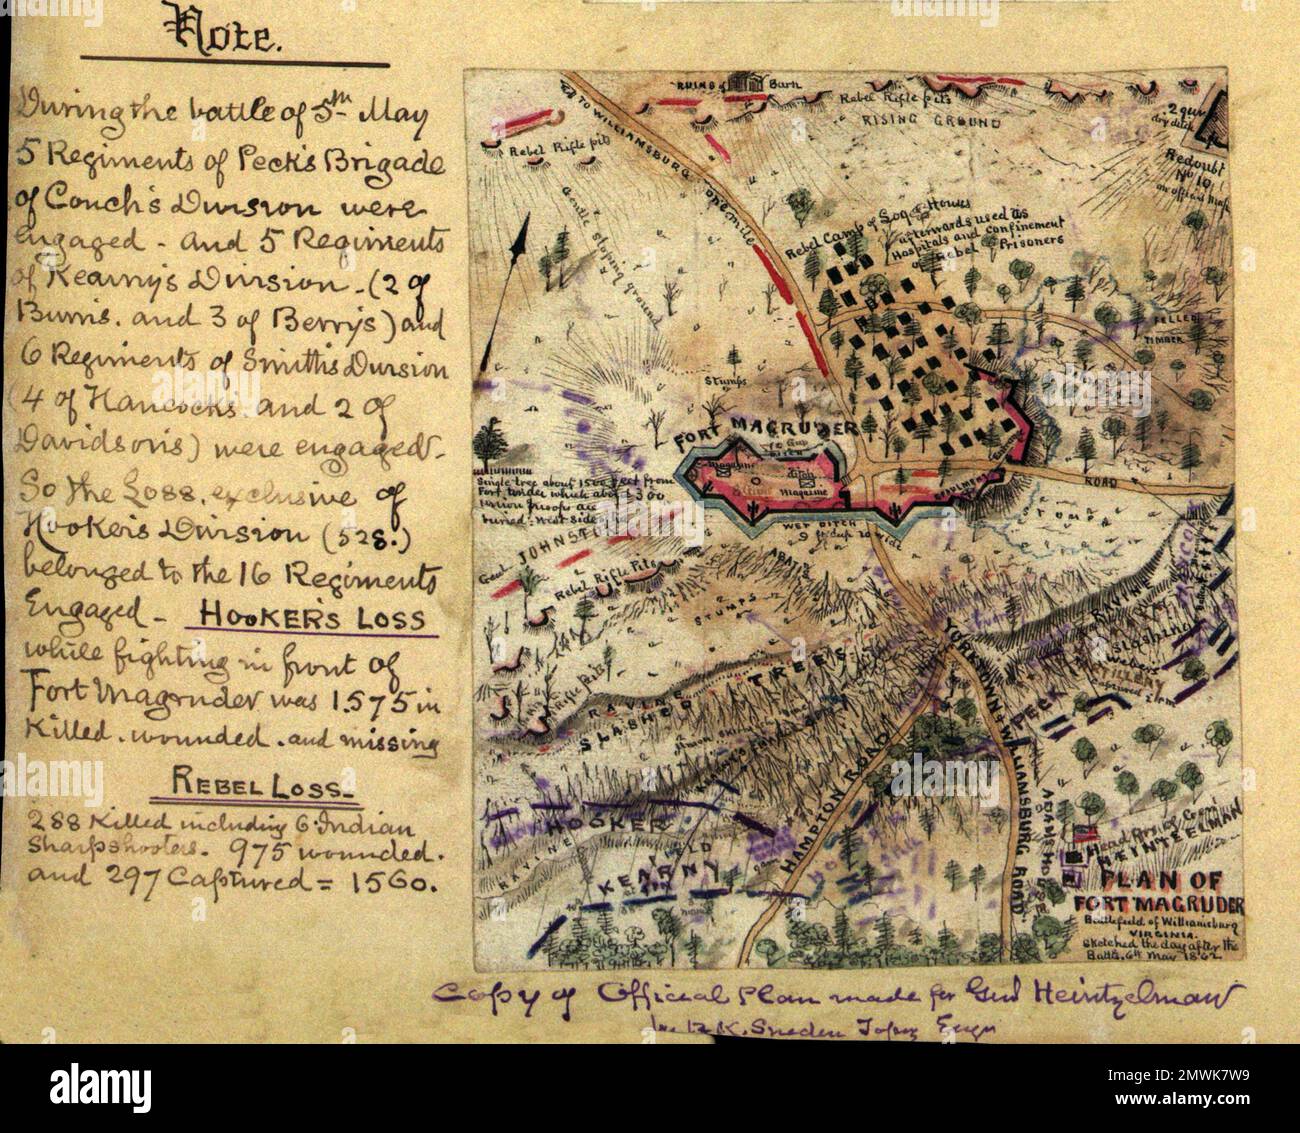 Note.
During the battle of 5th May
5 Regiments of Peck's Brigade
of Couch's Division were
engaged - and 5 Regiments
of Kearny's Division - (2 of
Burris. and 3 of Berry's) and
6 Regiments of Smith's Division
(4 of Hancocks. and 2 of
Davidson's) were engaged -
So the Loss, exclusive of
Hooker's Division (528.)
belonged to the 16 Regiments
Engaged - HOOKER'S LOSS
while fighting in front of
Fort Magruder was 1.575 in
Killed. wounded. and missing
REBEL LOSS -
288 Killed including 6 Indian
Sharpshooters. 975 wounded.
and 297 Captured = 1560.
RUINS of Barn
Rebel Rifle pits
RISING GROUND
TO WILLIAMSBURG ONE MILE
Rebel Rifle pits
2 gun
dry ditch
Redoubt
No 10
on official map
Gentle sloping ground
Rebel Camp of Houses
afterwards used as
Hospitals and confinement
of Rebel Prisoners
FELLED
TIMBER
Stumps
FORT MAGRUDER
Magazine
Magazine
ROAD
Single tree about 1500 feet from
Fort, under which about 300
are
buried. West side
WET DITCH
9 ft deep 20 wide
STUMPS
Genl JOHNSTON
Rebel Rifle Pits
ABATIS
STUMPS
RAVINE
RAVINE
SLASHED TREES
Rifle pits
YORKTOWN & WILLIAMSBURG ROAD
Slashing
Webers
PECK
HAMPTON ROAD
HOOKER
RAVINE
KEARNY
ADAMS HOUSE
Head
HEINTZELMAN
PLAN OF
FORT MAGRUDER
Battlefield of Williamsburg
VIRGINIA.
Sketched the day after the
Battle, 6th May 1862
Copy of Official Plan made for Genl Heintzelman
by R. K. Sneden Topog Engr
alamy
Image ID: 2MWK7W9
www.alamy.com